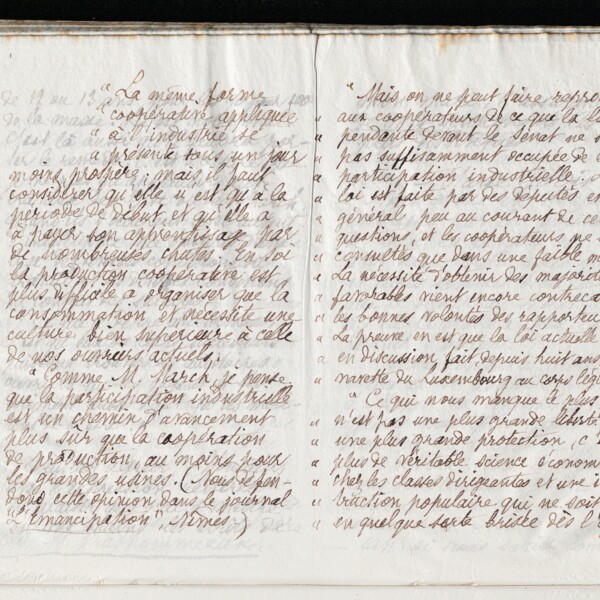 " La même forme
" coopérative appliquée
" à l'industrie se
" a présenté sous un jour
moins prospère ; mais il faut
considérer qu'elle n'est qu'à la
période de début, et qu'elle a
à payer son apprentissage par
de nombreuses chutes. En soi
la production coopérative est
plus difficile à organiser que la
consommation et nécessite une
culture bien supérieure à celle
de nos ouvriers actuels.
" Comme M. March, je pense
que la participation industrielle
est un chemin d'avancement
plus sûr que la coopération
de production, au moins pour
les grandes usines. (Nous défen-
dons cette opinion dans le journal
"L'Emancipation", Nîmes.)
" Mais on ne peut faire repro
" aux coopérateurs de ce que la l
" pendante devant le Sénat ne s
" pas suffisamment occupée de
" participation industrielle.
" loi est faite par des députés en
" général peu au courant de ce
" questions, et les coopérateurs ne
" consultés que dans une faible m
" La nécessité d'obtenir des majorit
" favorables vient encore contreca
" les bonnes volontés des rapporteu
" La preuve en est que la loi actuelle
" en discussion fait depuis huit ans
" navette du Luxembourg au corps légi
" Ce qui nous manque le plus
" n'est pas une plus grande liberté
" une plus grande protection, c'
" plus de véritable science économ
" chez les classes dirigeantes et une i
" truction populaire qui ne soit
" en quelque sorte brisée dès l'